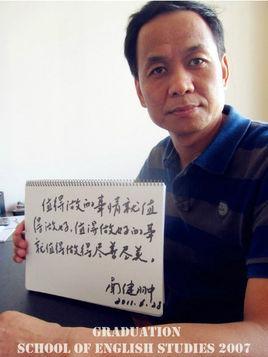 值得做的事情就值
得做好,值得做好的事
就值得做得尽善尽美。
2011.6.23
GRADUATION
SCHOOL OF ENGLISH STUDIES 2007